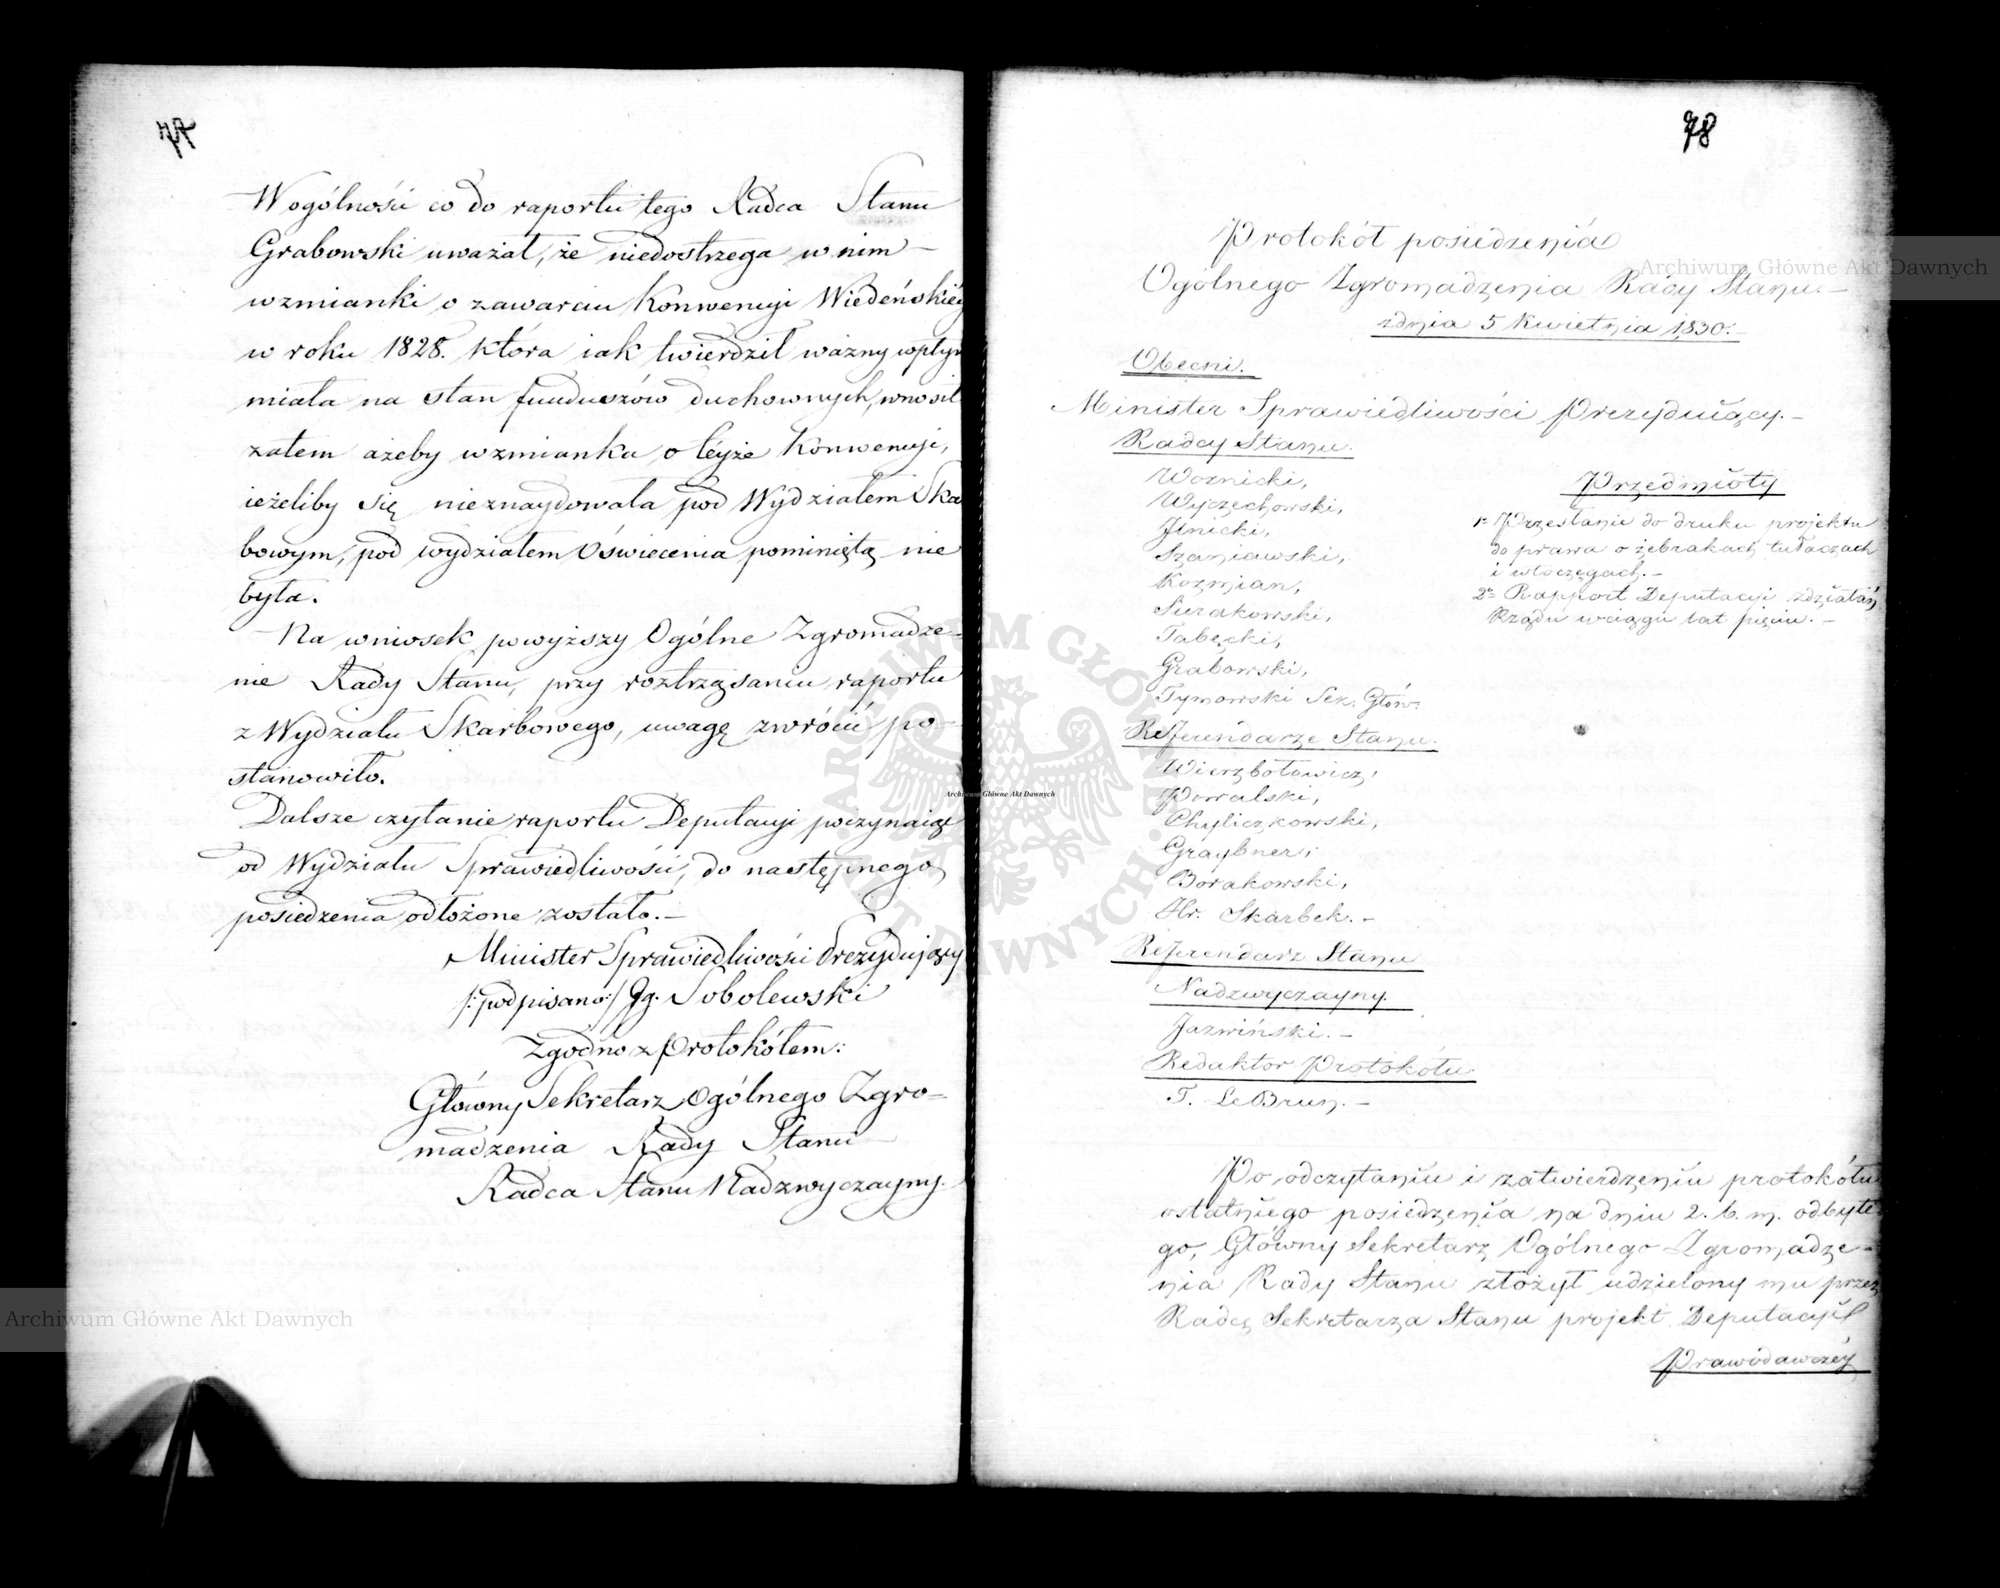 77
W ogólności co do raportu tego Radca Stanu
Grabowski uważał, że niedostrzega w nim
wzmianki o zawarciu Konwencyi Wiedeńskiéy
w roku 1828. która iak twierdził ważny wpływ
miała na stan funduszów duchownych, wnosił
zatem ażeby wzmianka o téyże Konwencyi,
ieżeliby się nieznaydowała pod Wydziałem Ska
bowym, pod wydziałem Oświecenia pominiętą nie
była.
Na wniosek powyższy Ogólne Zgromadze-
nie Rady Stanu, przy roztrząsaniu raportu
z Wydziału Skarbowego, uwagę zwrócić po-
stanowiło.
Dalsze czytanie raportu Deputacyi poczynaiąc
od Wydziału Sprawiedliwości, do następnego
posiedzenia odłożone zostało.-
Minister Sprawiedliwości Prezydujący
/:podpisano:/ Ig. Sobolewski
Zgodno z Protokółem:
Główny Sekretarz Ogólnego Zgro=
madzenia Rady Stanu
Radca Stanu Nadzwyczayny.
78
Protokół posiedzenia
Ogólnego Zgromadzenia Rady Stanu.-
z dnia 5 Kwietnia 1830.
Obecni.
Minister Sprawiedliwości Prezydujący.-
Radcy Stanu.
Woznicki,
Wyczechowski,
Ilnicki,
Szaniawski,
Kozmian,
Sierakowski,
Tabęcki,
Grabowski,
Tymowski Sek: Głów:
Referendarze Stanu.
Wierzbołowicz,
Powalski,
Chyliczkowski,
Graybner,
Borakowski,
Hr. Skarbek.-
Referendarz Stanu
Nadzwyczayny.
Jazwiński.-
Redaktor Protokółu
T. LeBrun.-
Przedmioty
1o Przesłanie do druku projektu
do prawa o żebrakach tułaczach
i włóczęgach.-
2o Rapport Deputacyi z działań
Rządu w ciągu lat pięciu.-
Po odczytaniu i zatwierdzeniu protokółu
ostatniego posiedzenia na dniu 2. b. m. odbyte-
go, Główny Sekretarz Ogólnego Zgromadze-
nia Rady Stanu złożył udzielony mu przez
Radcę Sekretarza Stanu projekt Deputacyi
Prawodawczéy
Archiwum Główne Akt Dawnych
Archiwum Główne Akt Dawnych
Archiwum Główne Akt Dawnych
ARCHIWUM GŁÓWNE AKT DAWNYCH